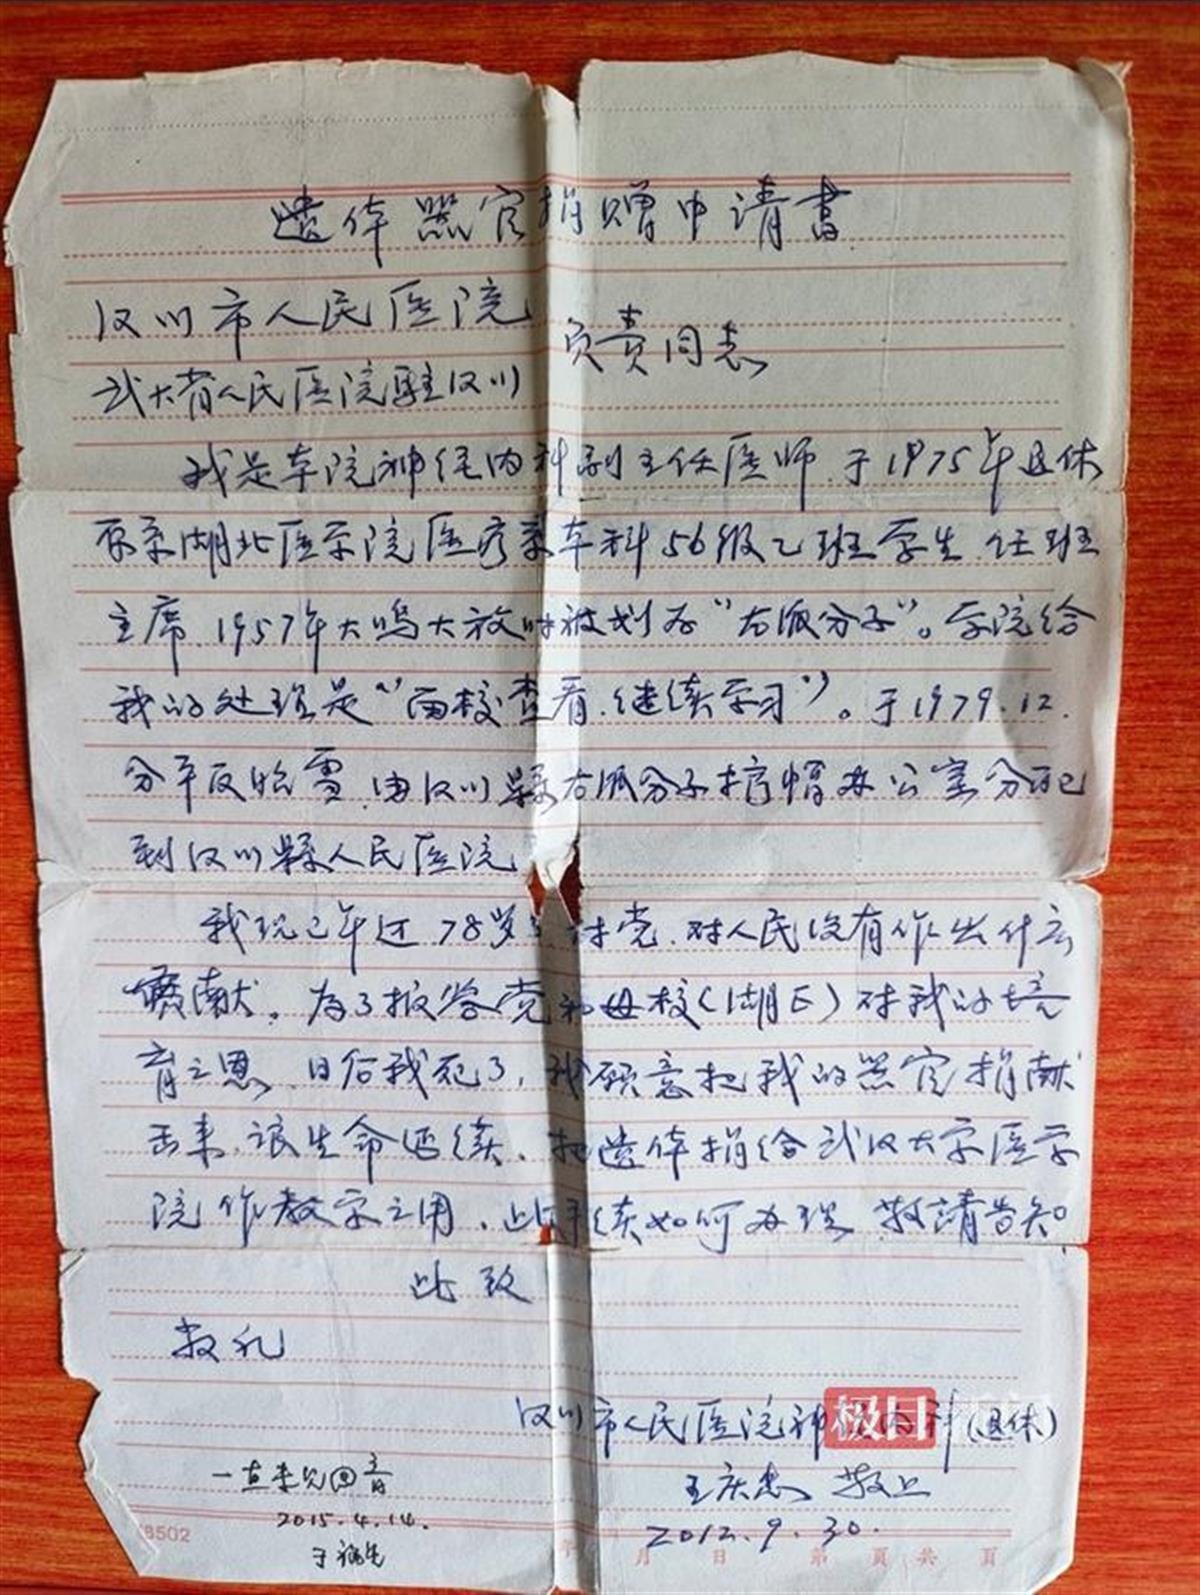 遗体器官捐赠申请书
汉川市人民医院
负责同志
武大省人民医院驻汉川
我是本院神经内科副主任医师.于1975年退休
原系湖北医学院医疗系本科56级乙班学生.任班
主席.1957年大鸣大放时被划为“右派分子”。学院给
我的处理是“留校查看.继续学习”。于1979.12.
分平反昭雪.由汉川县右派分子摘帽办公室分配
到汉川县人民医院
我现已年近78岁了对党.对人民没有作出什么
贡献。为了报答党和母校(湖医)对我的培
育之恩.日后我死了,我愿意把我的器官捐献
出来.让生命延续、把遗体捐给武汉大学医学
院作教学之用、此手续如何办理.敬請告知
此致
敬礼
汉川市人民医院神经内科(退休)
极目新闻
王庆忠 敬上
2012.9.30.
一直未见回音
2015.4.14.
于
8502
年 月 日 第 页 共 页